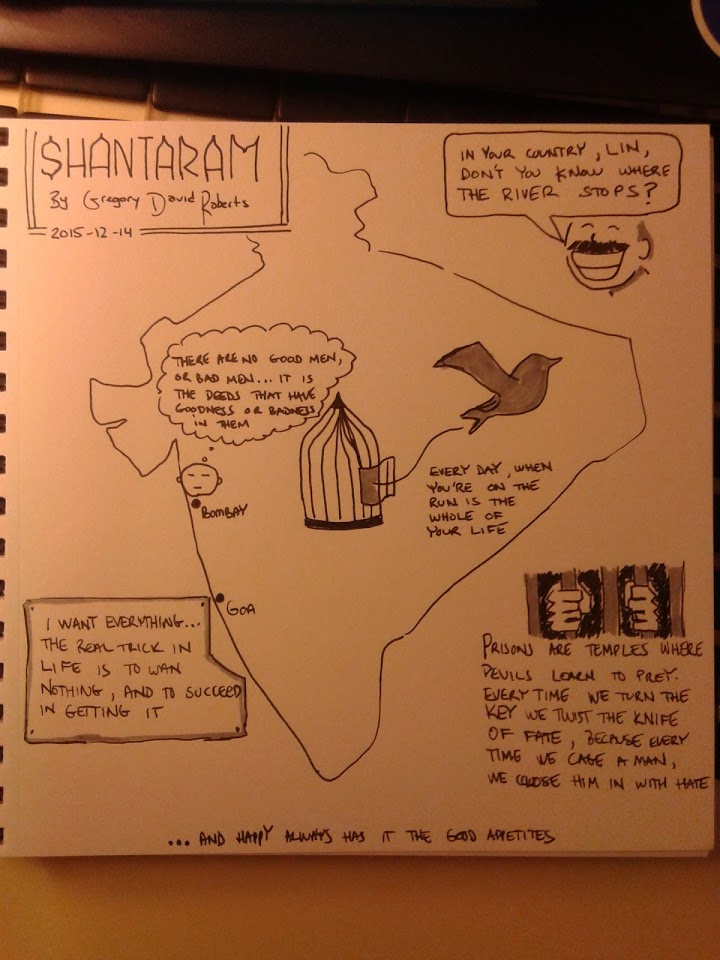 SHANTARAM
By Gregory David Roberts
2015-12-14
IN YOUR COUNTRY, LIN,
DON'T YOU KNOW WHERE
THE RIVER STOPS?
THERE ARE NO GOOD MEN,
OR BAD MEN... IT IS
THE DEEDS THAT HAVE
GOODNESS OR BADNESS
IN THEM
BOMBAY
EVERY DAY, WHEN
YOU'RE ON THE
RUN IS THE
WHOLE OF
YOUR LIFE
GOA
I WANT EVERYTHING...
THE REAL TRICK IN
LIFE IS TO WAN
NOTHING, AND TO SUCCEED
IN GETTING IT
PRISONS ARE TEMPLES WHERE
DEVILS LEARN TO PREY.
EVERY TIME WE TURN THE
KEY WE TWIST THE KNIFE
OF FATE, BECAUSE EVERY
TIME WE CAGE A MAN,
WE CLOSE HIM IN WITH HATE
... AND HAPPY ALWAYS HAS IT THE GOOD APETITES